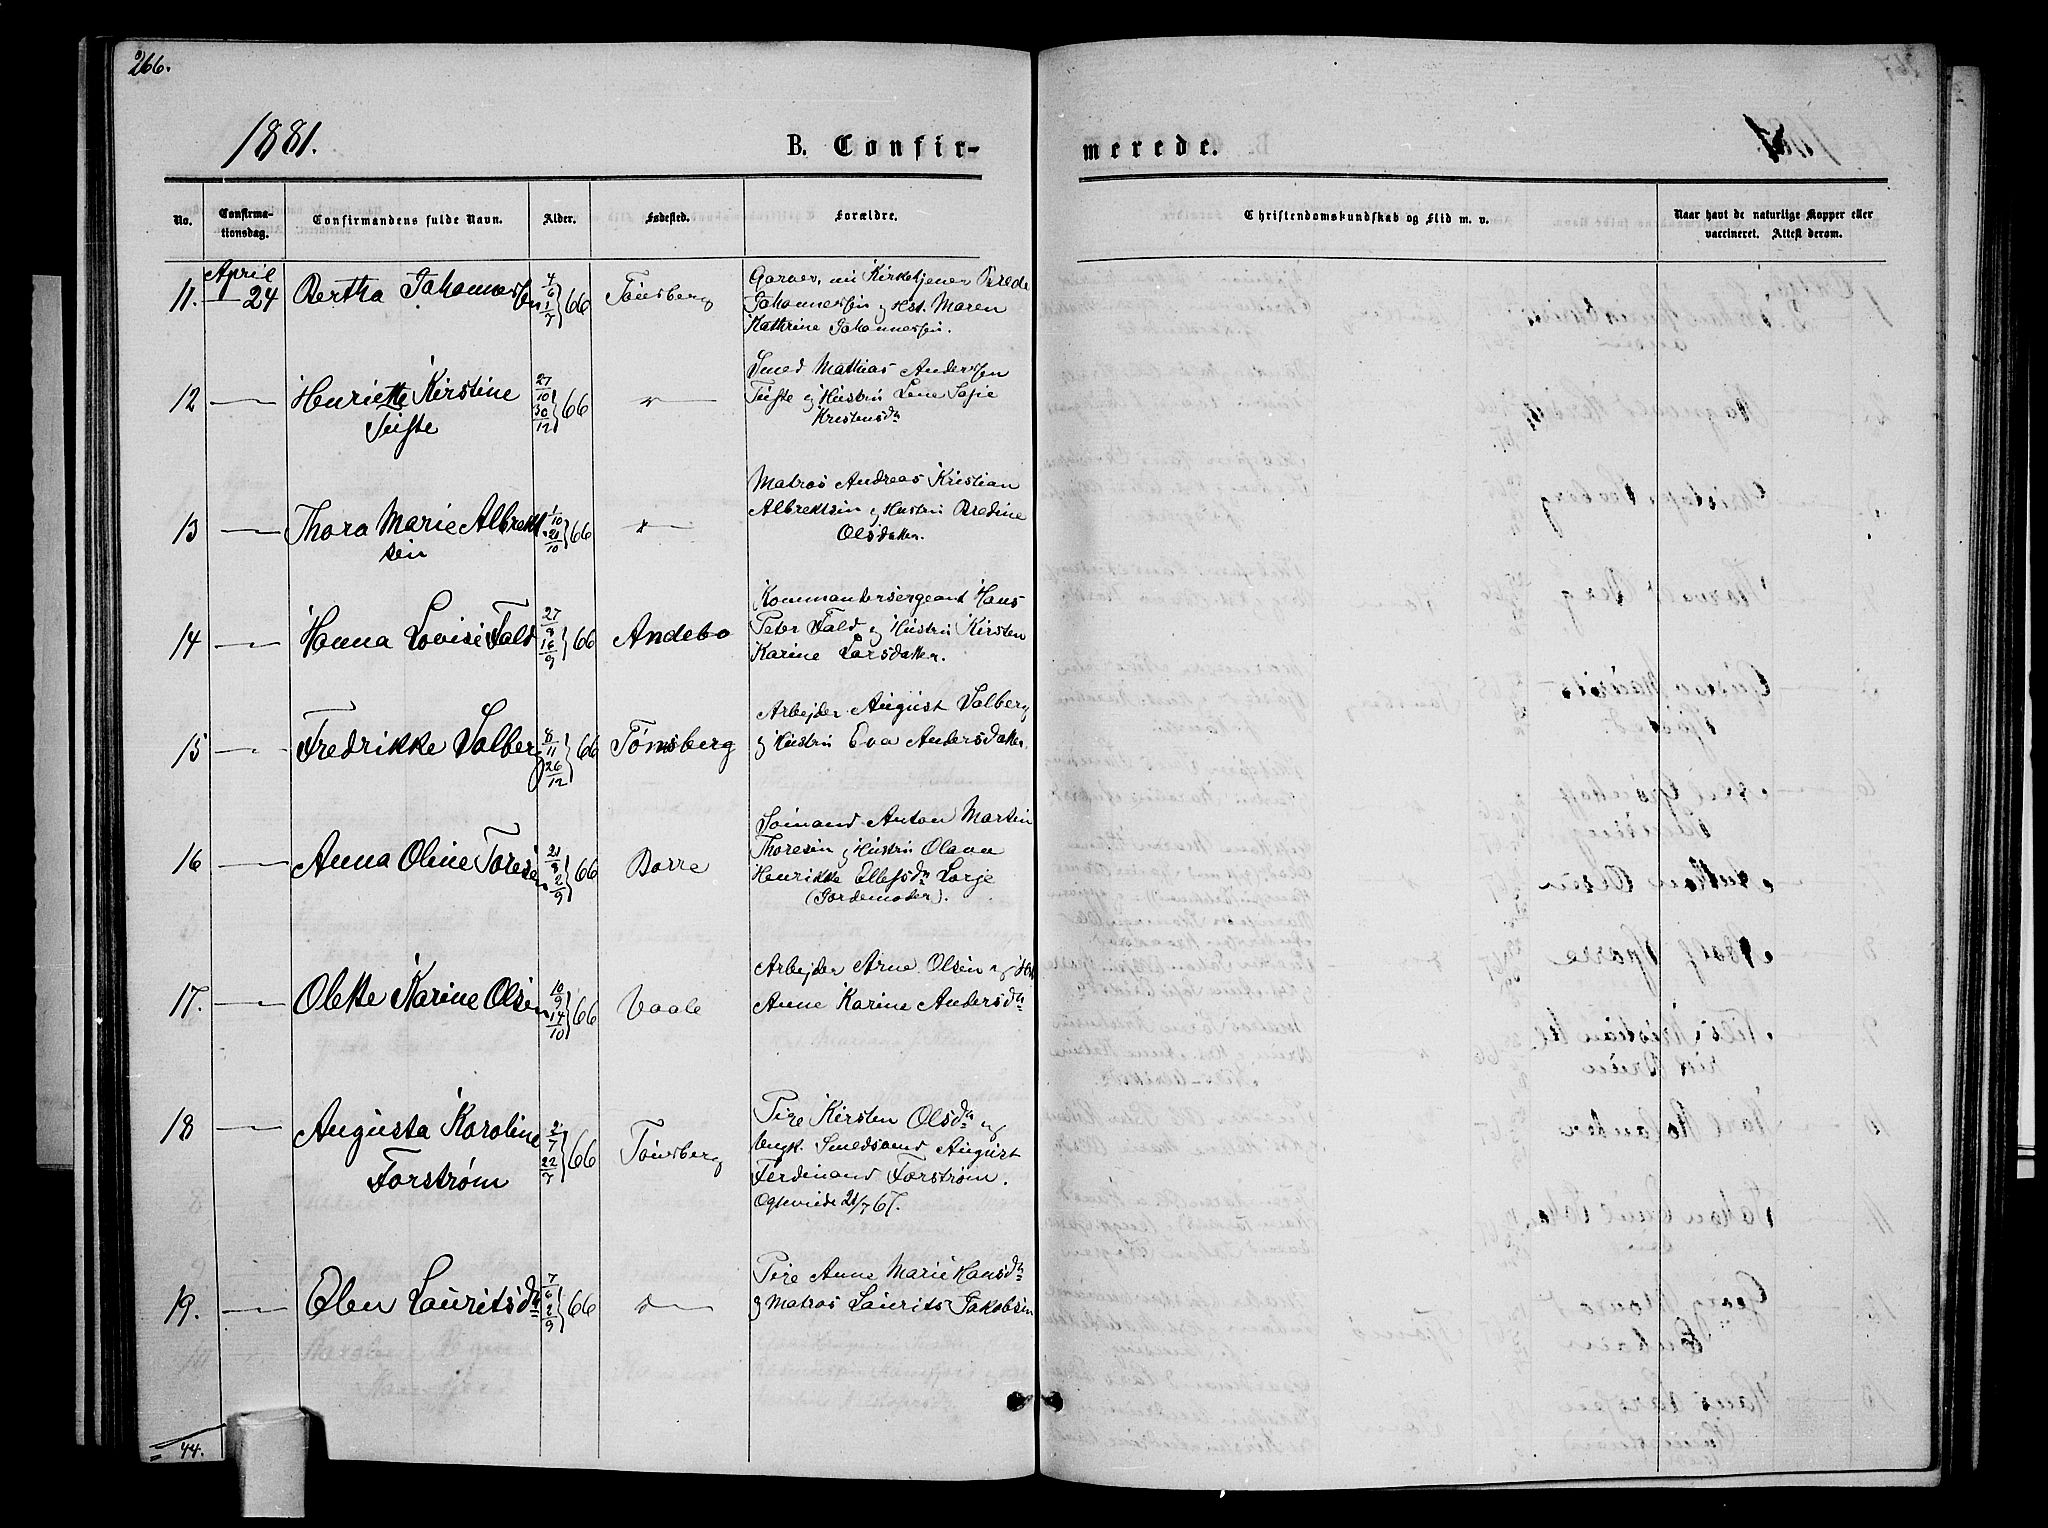 266.
1881.
B. Confir-
merede.
No.
Confirma-
tionsdag.
Confirmandens fulde Navn.
Alder.
Fødested.
Forældre.
Christendomskundskab og Flid m. v.
Naar havt de naturlige Kopper eller
vaccineret. Attest derom.
April
11. 24 Bertha Johannessen 4/6 1/7 } 66 Tönsberg
Garver, nu Kirketjener Brede
Johannessen og Hst. Maren
Kathrine Johannessen.
12 — Henriette Kirstine 27/10 30/12 } 66 " —
Teiste
Smed Mathias Anderssen
Teiste og Hustru Lene Sofie
Kristensdtr
13 — Thora Marie Albrekt- 1/10 21/10 } 66 " —
sen
Matros Andreas Kristian
Albrektsen og Hustru Bredine
Olsdatter.
14 — Hanna Lovise Fald 27/8 16/9 } 66 Andebo
Kommandersergeant Hans
Peter Fald og Hustru Kirsten
Karine Larsdatter.
15 — Fredrikke Salberg 8/11 26/12 } 66 Tønsberg
Arbejder August Salberg
og Hustru Eva Andersdatter.
16 — Anna Oline Toresen 21/8 2/9 } 66 Borre
Sömand Anton Martin
Thoresen og Hustru Olava
Henrikke Ellefsdtr Lorje
(Jordemoder).
17. — Olette Karine Olsen 10/9 14/10 } 66 Vaale
Arbejder Arne Olsen og Hst
Anne Karine Andersdtr
18 — Augusta Karoline 2/7 22/7 } 66 Tönsberg
Forstrøm
Pige Kirsten Olsdtr og
Ungk. Smedsvend August
Ferdinand Forstrøm.
Ægteviede 21/7 67.
19. — Elen Lauritsdtr 7/6 2/9 } 66 " —
Pige Anne Marie Hansdtr
og Matros Laurits Jakobsen
= 44.